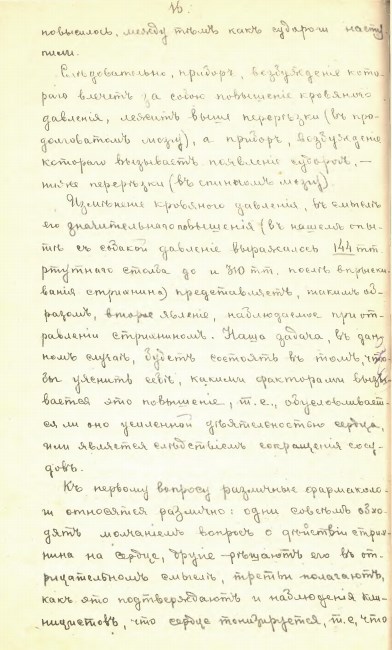 16.
повысилось, между тѣмъ какъ судороги насту
пили.
Слѣдовательно, приборъ, возбужденіе кото-
раго влечетъ за собою повышеніе кровяного
давленія, лежитъ выше перерѣзки (въ про-
долговатомъ мозгу), а приборъ, возбужденіе
котораго вызываетъ появленіе судорогъ, —
ниже перерѣзки (въ спинномъ мозгу).
Измѣненіе кровяного давленія, въ смыслѣ
его значительнаго повышенія (въ нашемъ опы-
тѣ съ собакой давленіе выражалось 144 mm.
ртутнаго столба до и 310 mm. послѣ впрыски-
ванія стрихнина) представляетъ, такимъ об-
разомъ, второе явленіе, наблюдаемое при от-
равленіи стрихниномъ. Наша задача, въ дан-
номъ случаѣ, будетъ состоять въ томъ, что
бы уяснить себѣ, какими факторами вызы-
вается это повышеніе, т.е., обусловливает-
ся ли оно усиленной дѣятельностью сердца,
или является слѣдствіемъ сокращенія сосу-
довъ.
Къ первому вопросу различные фармаколо-
ги относятся различно: одни совсѣмъ обхо-
дятъ молчаніемъ вопросъ о дѣйствіи стрих-
нина на сердце, другіе рѣшаютъ его въ от-
рицательномъ смыслѣ, третьи полагаютъ,
какъ это подтверждаютъ и наблюденія кли-
ницистовъ, что сердце тонизируется, т.е., что